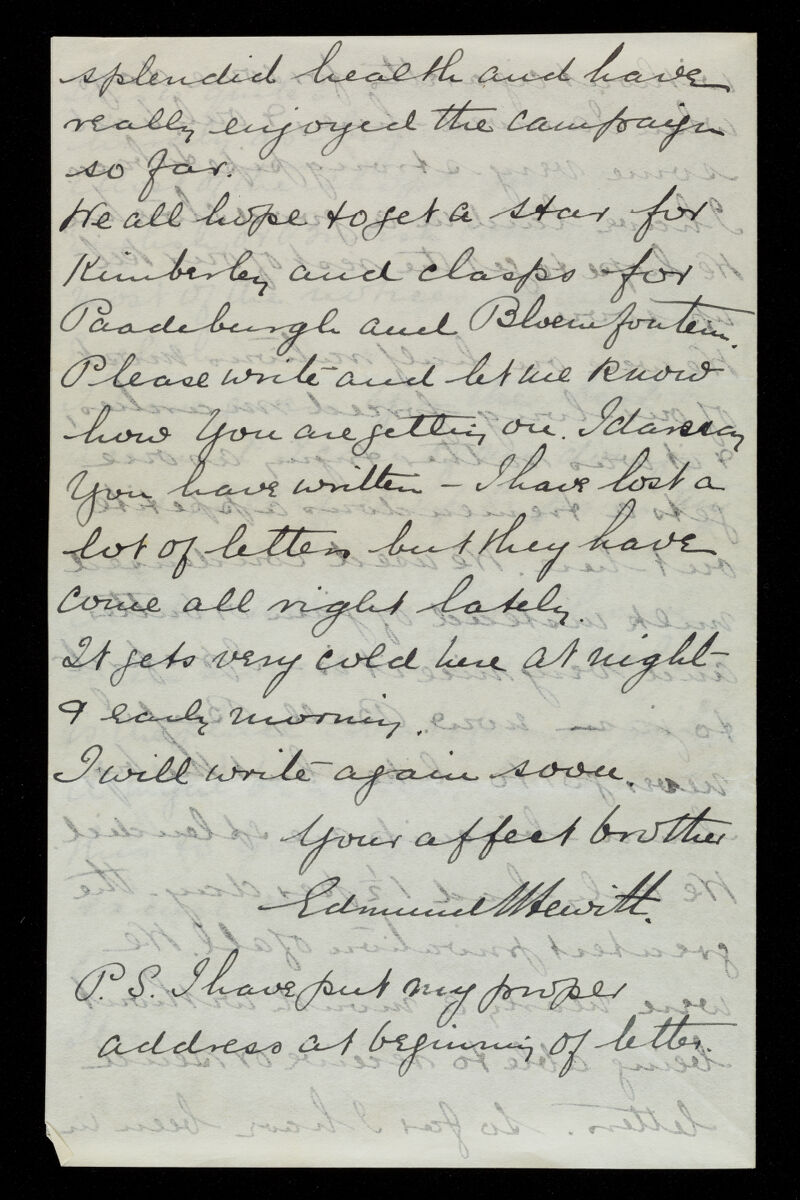 splendid health and have
really enjoyed the campaign
so far.
We all hope to get a star for
Kimberley and clasps for
Paadeburgh and Bloemfontein.
Please write and let me know
how you are getting on. I daresay
you have written – I have lost a
lot of letters but they have
come all right lately.
It gets very cold here at night
& early morning.
I will write again soon.
Your affect brother
Edmund Hewitt.
P.S. I have put my proper
address at beginning of letter.